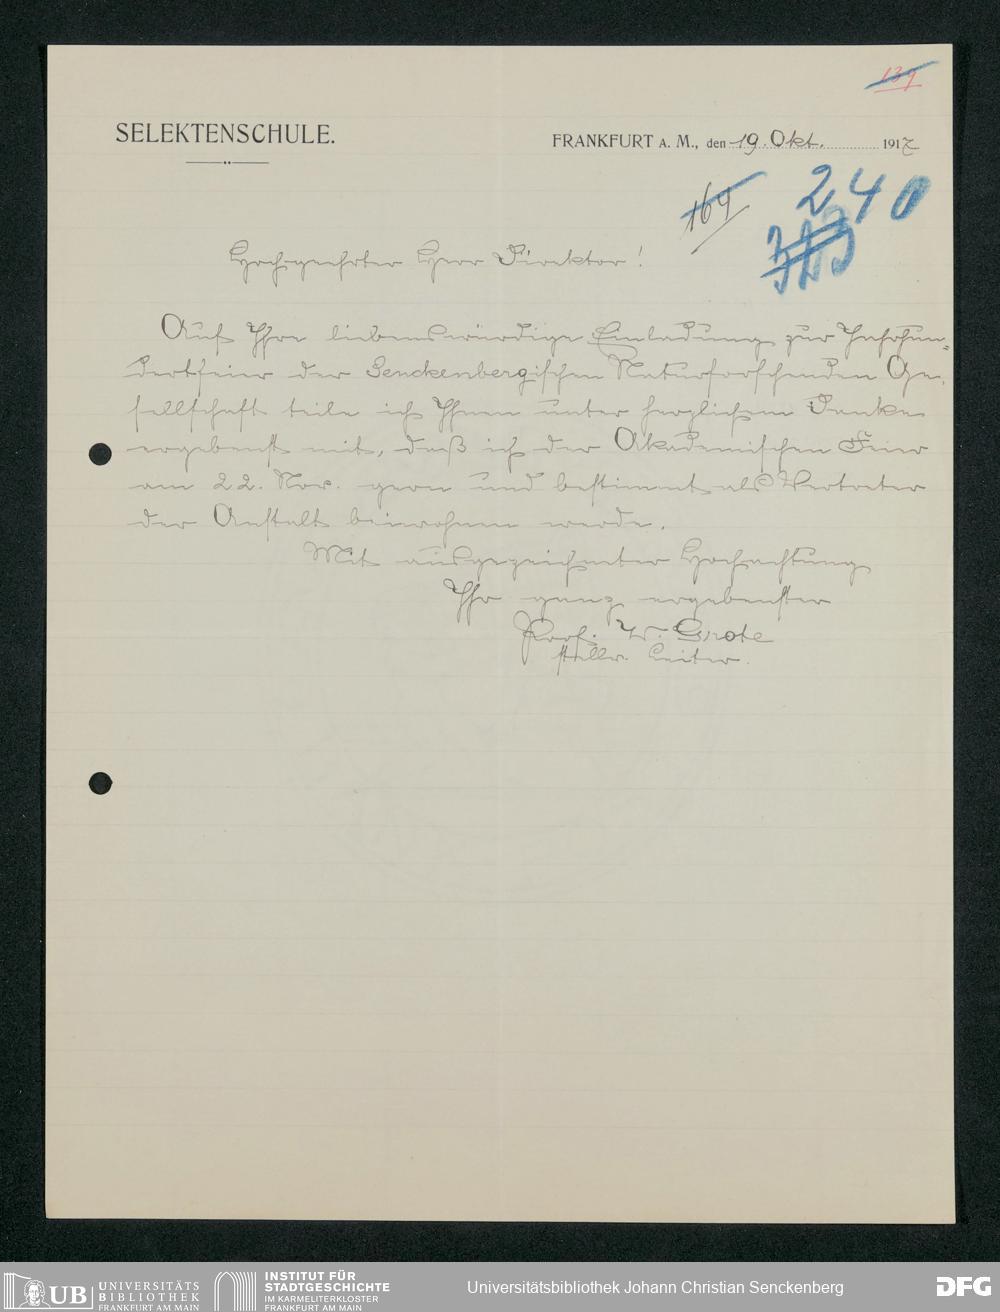 139
SELEKTENSCHULE.
FRANKFURT A. M., den 19. Okt. 1917
169
240
Hochgeehrter Herr Direktor!
Auf Ihre liebenswürdige Einladung zur Jahrhun-
dertfeier der Senckenbergischen Naturforschenden Ge-
sellschaft teile ich Ihnen unter herzlichem Danke
ergebenst mit, daß ich der Akademischen Feier
am 22. Nov. gern und bestimmt als Vertreter
der Anstalt beiwohnen werde.
Mit ausgezeichneter Hochachtung
Ihr ganz ergebenster
Prof. W. Grote
stellv. Leiter.
UB UNIVERSITÄTS
BIBLIOTHEK
FRANKFURT AM MAIN
INSTITUT FÜR
STADTGESCHICHTE
IM KARMELITERKLOSTER
FRANKFURT AM MAIN
Universitätsbibliothek Johann Christian Senckenberg
DFG